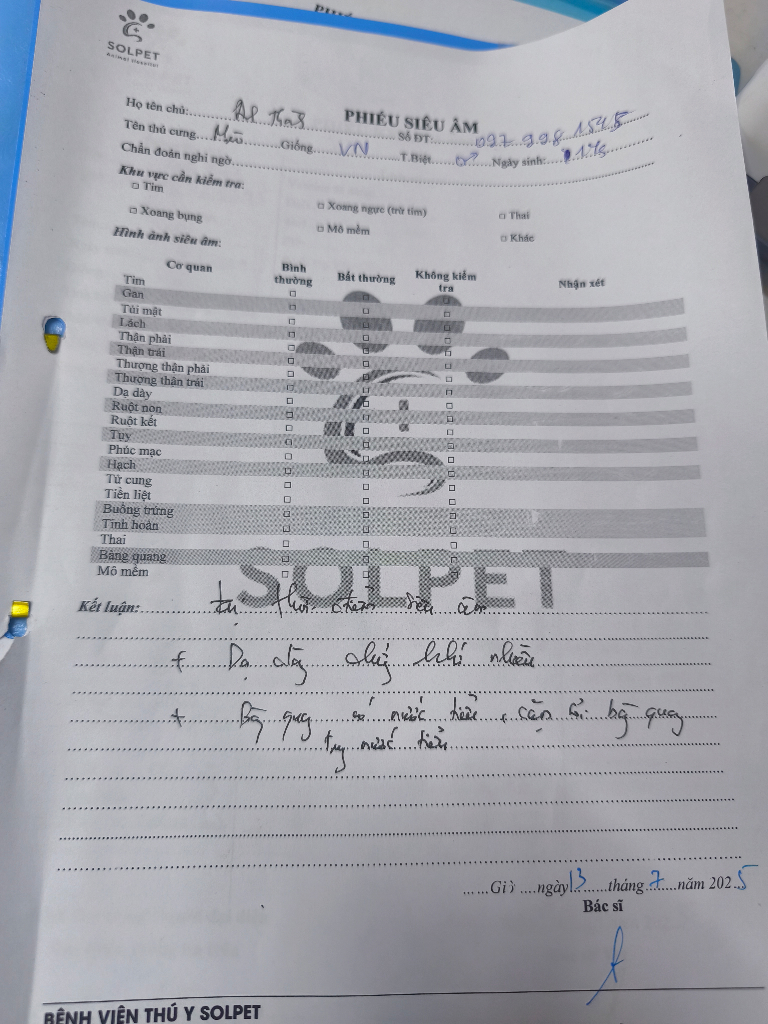 SOLPET
Animal Hospital
PHIẾU SIÊU ÂM
Họ tên chủ: Số ĐT: 097 998 1545
Tên thú cưng Giống VN T.Biệt ♂ Ngày sinh:
Chẩn đoán nghi ngờ
Khu vực cần kiểm tra:
□ Tim □ Xoang ngực (trừ tim) □ Thai
□ Xoang bụng □ Mô mềm □ Khác
Hình ảnh siêu âm:
Cơ quan Bình thường Bất thường Không kiểm tra Nhận xét
Tim □ □ □
Gan □ □ □
Túi mật □ □ □
Lách □ □ □
Thận phải □ □ □
Thận trái □ □ □
Thượng thận phải □ □ □
Thượng thận trái □ □ □
Dạ dày □ □ □
Ruột non □ □ □
Ruột kết □ □ □
Tụy □ □ □
Phúc mạc □ □ □
Hạch □ □ □
Tử cung □ □ □
Tiền liệt □ □ □
Buồng trứng □ □ □
Tinh hoàn □ □ □
Thai □ □ □
Bàng quang □ □ □
Mô mềm □ □ □
SOLPET
Kết luận: tại thời điểm siêu âm
+ Dạ dày chứa khí nhiều
+ Bàng quang có nước tiểu, cặn bàng quang
nước tiểu
Giờ ngày 13 tháng 7 năm 2025
Bác sĩ
BỆNH VIỆN THÚ Y SOLPET